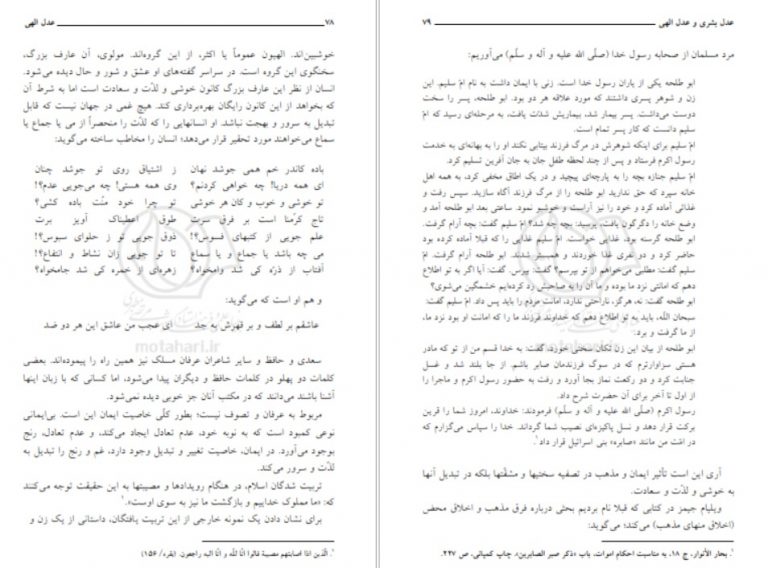 ۷۸
عدل الهی
خوشبین‌اند. الهیون عموماً یا اکثر، از این گروه‌اند. مولوی، آن عارف بزرگ،
سخنگوی این گروه است. در سراسر گفته‌های او عشق و شور و حال دیده می‌شود.
انسان از نظر این عارف بزرگ کانون خوشی و لذّت و سعادت است اما به شرط آن
که بخواهد از این کانون رایگان بهره‌برداری کند. هیچ غمی در جهان نیست که قابل
تبدیل به سرور و بهجت نباشد. او انسانهایی را که لذّت را منحصراً از می یا جماع یا
سماع می‌خواهند مورد تحقیر قرار می‌دهد؛ انسان را مخاطب ساخته می‌گوید:
باده کاندر خم همی جوشد نهان ز اشتیاق روی تو جوشد چنان
ای همه دریا! چه خواهی کردنم؟ وی همه هستی! چه می‌جویی عدم؟!
تو خوشی و خوب و کان هر خوشی تو چرا خود منّت باده کشی؟
تاج کرّمنا است بر فرق سرت طوق اعطیناک آویز برت
علم جویی از کتبهای فسوس؟! ذوق جویی تو ز حلوای سبوس؟!
می چه باشد یا جماع و یا سماع تا تو جویی زان نشاط و انتفاع؟!
آفتاب از ذرّه کی شد وامخواه؟ زهره‌ای از خمره کی شد جامخواه؟
و هم او است که می‌گوید:
عاشقم بر لطف و بر قهرش به جد ای عجب من عاشق این هر دو ضد
سعدی و حافظ و سایر شاعران عرفان مسلک نیز همین راه را پیموده‌اند. بعضی
کلمات دو پهلو در کلمات حافظ و دیگران پیدا می‌شود، اما کسانی که با زبان اینها
آشنا باشند می‌دانند که در مکتب آنان جز خوبی دیده نمی‌شود.
مربوط به عرفان و تصوف نیست؛ بطور کلّی خاصیت ایمان این است. بی‌ایمانی
نوعی کمبود است که به نوبه خود، عدم تعادل ایجاد می‌کند، و عدم تعادل، رنج
بوجود می‌آورد. در ایمان، خاصیت تغییر و تبدیل وجود دارد، غم و رنج را تبدیل به
لذّت و سرور می‌کند.
تربیت شدگان اسلام، در هنگام رویدادها و مصیبتها به این حقیقت توجه می‌کنند
که: «ما مملوک خداییم و بازگشت ما نیز به سوی اوست».۱
برای نشان دادن یک نمونه خارجی از این تربیت یافتگان، داستانی از یک زن و
۱. الّذین اذا اصابتهم مصیبة قالوا انّا للّه و انّا الیه راجعون. (بقره/ ۱۵۶)
عدل بشری و عدل الهی
۷۹
مرد مسلمان از صحابه رسول خدا (صلّی اللّه علیه و آله و سلّم) می‌آوریم:
ابو طلحه یکی از یاران رسول خدا است. زنی با ایمان داشت به نام امّ سلیم. این
زن و شوهر پسری داشتند که مورد علاقه هر دو بود. ابو طلحه، پسر را سخت
دوست می‌داشت. پسر بیمار شد، بیماریش شدّت یافت، به مرحله‌ای رسید که امّ
سلیم دانست که کار پسر تمام است.
امّ سلیم برای اینکه شوهرش در مرگ فرزند بیتابی نکند او را به بهانه‌ای به خدمت
رسول اکرم فرستاد و پس از چند لحظه طفل جان به جان آفرین تسلیم کرد.
امّ سلیم جنازه بچه را به پارچه‌ای پیچید و در یک اطاق مخفی کرد، به همه اهل
خانه سپرد که حق ندارید ابو طلحه را از مرگ فرزند آگاه سازید. سپس رفت و
غذائی آماده کرد و خود را نیز آراست و خوشبو نمود. ساعتی بعد ابو طلحه آمد و
وضع خانه را دگرگون یافت، پرسید: بچه چه شد؟ امّ سلیم گفت: بچه آرام گرفت.
ابو طلحه گرسنه بود. غذایی خواست. امّ سلیم غذایی را که قبلا آماده کرده بود
حاضر کرد و دو نفری غذا خوردند و همبستر شدند. ابو طلحه آرام گرفت. امّ
سلیم گفت: مطلبی می‌خواهم از تو بپرسم؟ گفت: بپرس. گفت: آیا اگر به تو اطلاع
دهم که امانتی نزد ما بوده و ما آن را به صاحبش رد کرده‌ایم خشمگین می‌شوی؟
ابو طلحه گفت: نه، هرگز، ناراحتی ندارد، امانت مردم را باید پس داد. امّ سلیم گفت:
سبحان اللّه، باید به تو اطلاع دهم که خداوند فرزند ما را که امانت او بود نزد ما،
از ما گرفت و برد.
ابو طلحه از بیان این زن تکان سختی خورد، گفت: به خدا قسم من از تو که مادر
هستی سزاوارترم که در سوگ فرزندمان صابر باشم. از جا بلند شد و غسل
جنابت کرد و دو رکعت نماز بجا آورد و رفت به حضور رسول اکرم و ماجرا را
از اول تا آخر برای آن حضرت شرح داد.
رسول اکرم (صلّی اللّه علیه و آله و سلّم) فرمودند: خداوند، امروز شما را قرین
برکت قرار دهد و نسل پاکیزه‌ای نصیب شما گرداند. خدا را سپاس می‌گزارم که
در امّت من مانند «صابره» بنی اسرائیل قرار داد.۱
آری این است تأثیر ایمان و مذهب در تصفیه سختیها و مشقّتها بلکه در تبدیل آنها
به خوشی و لذّت و سعادت.
ویلیام جیمز در کتابی که قبلا نام بردیم بحثی درباره فرق مذهب و اخلاق محض
(اخلاق منهای مذهب) می‌کند؛ می‌گوید:
۱. بحار الأنوار، ج ۱۸، به مناسبت احکام اموات، باب «ذکر صبر الصابرین»، چاپ کمپانی، ص ۲۲۷.
motahari.ir